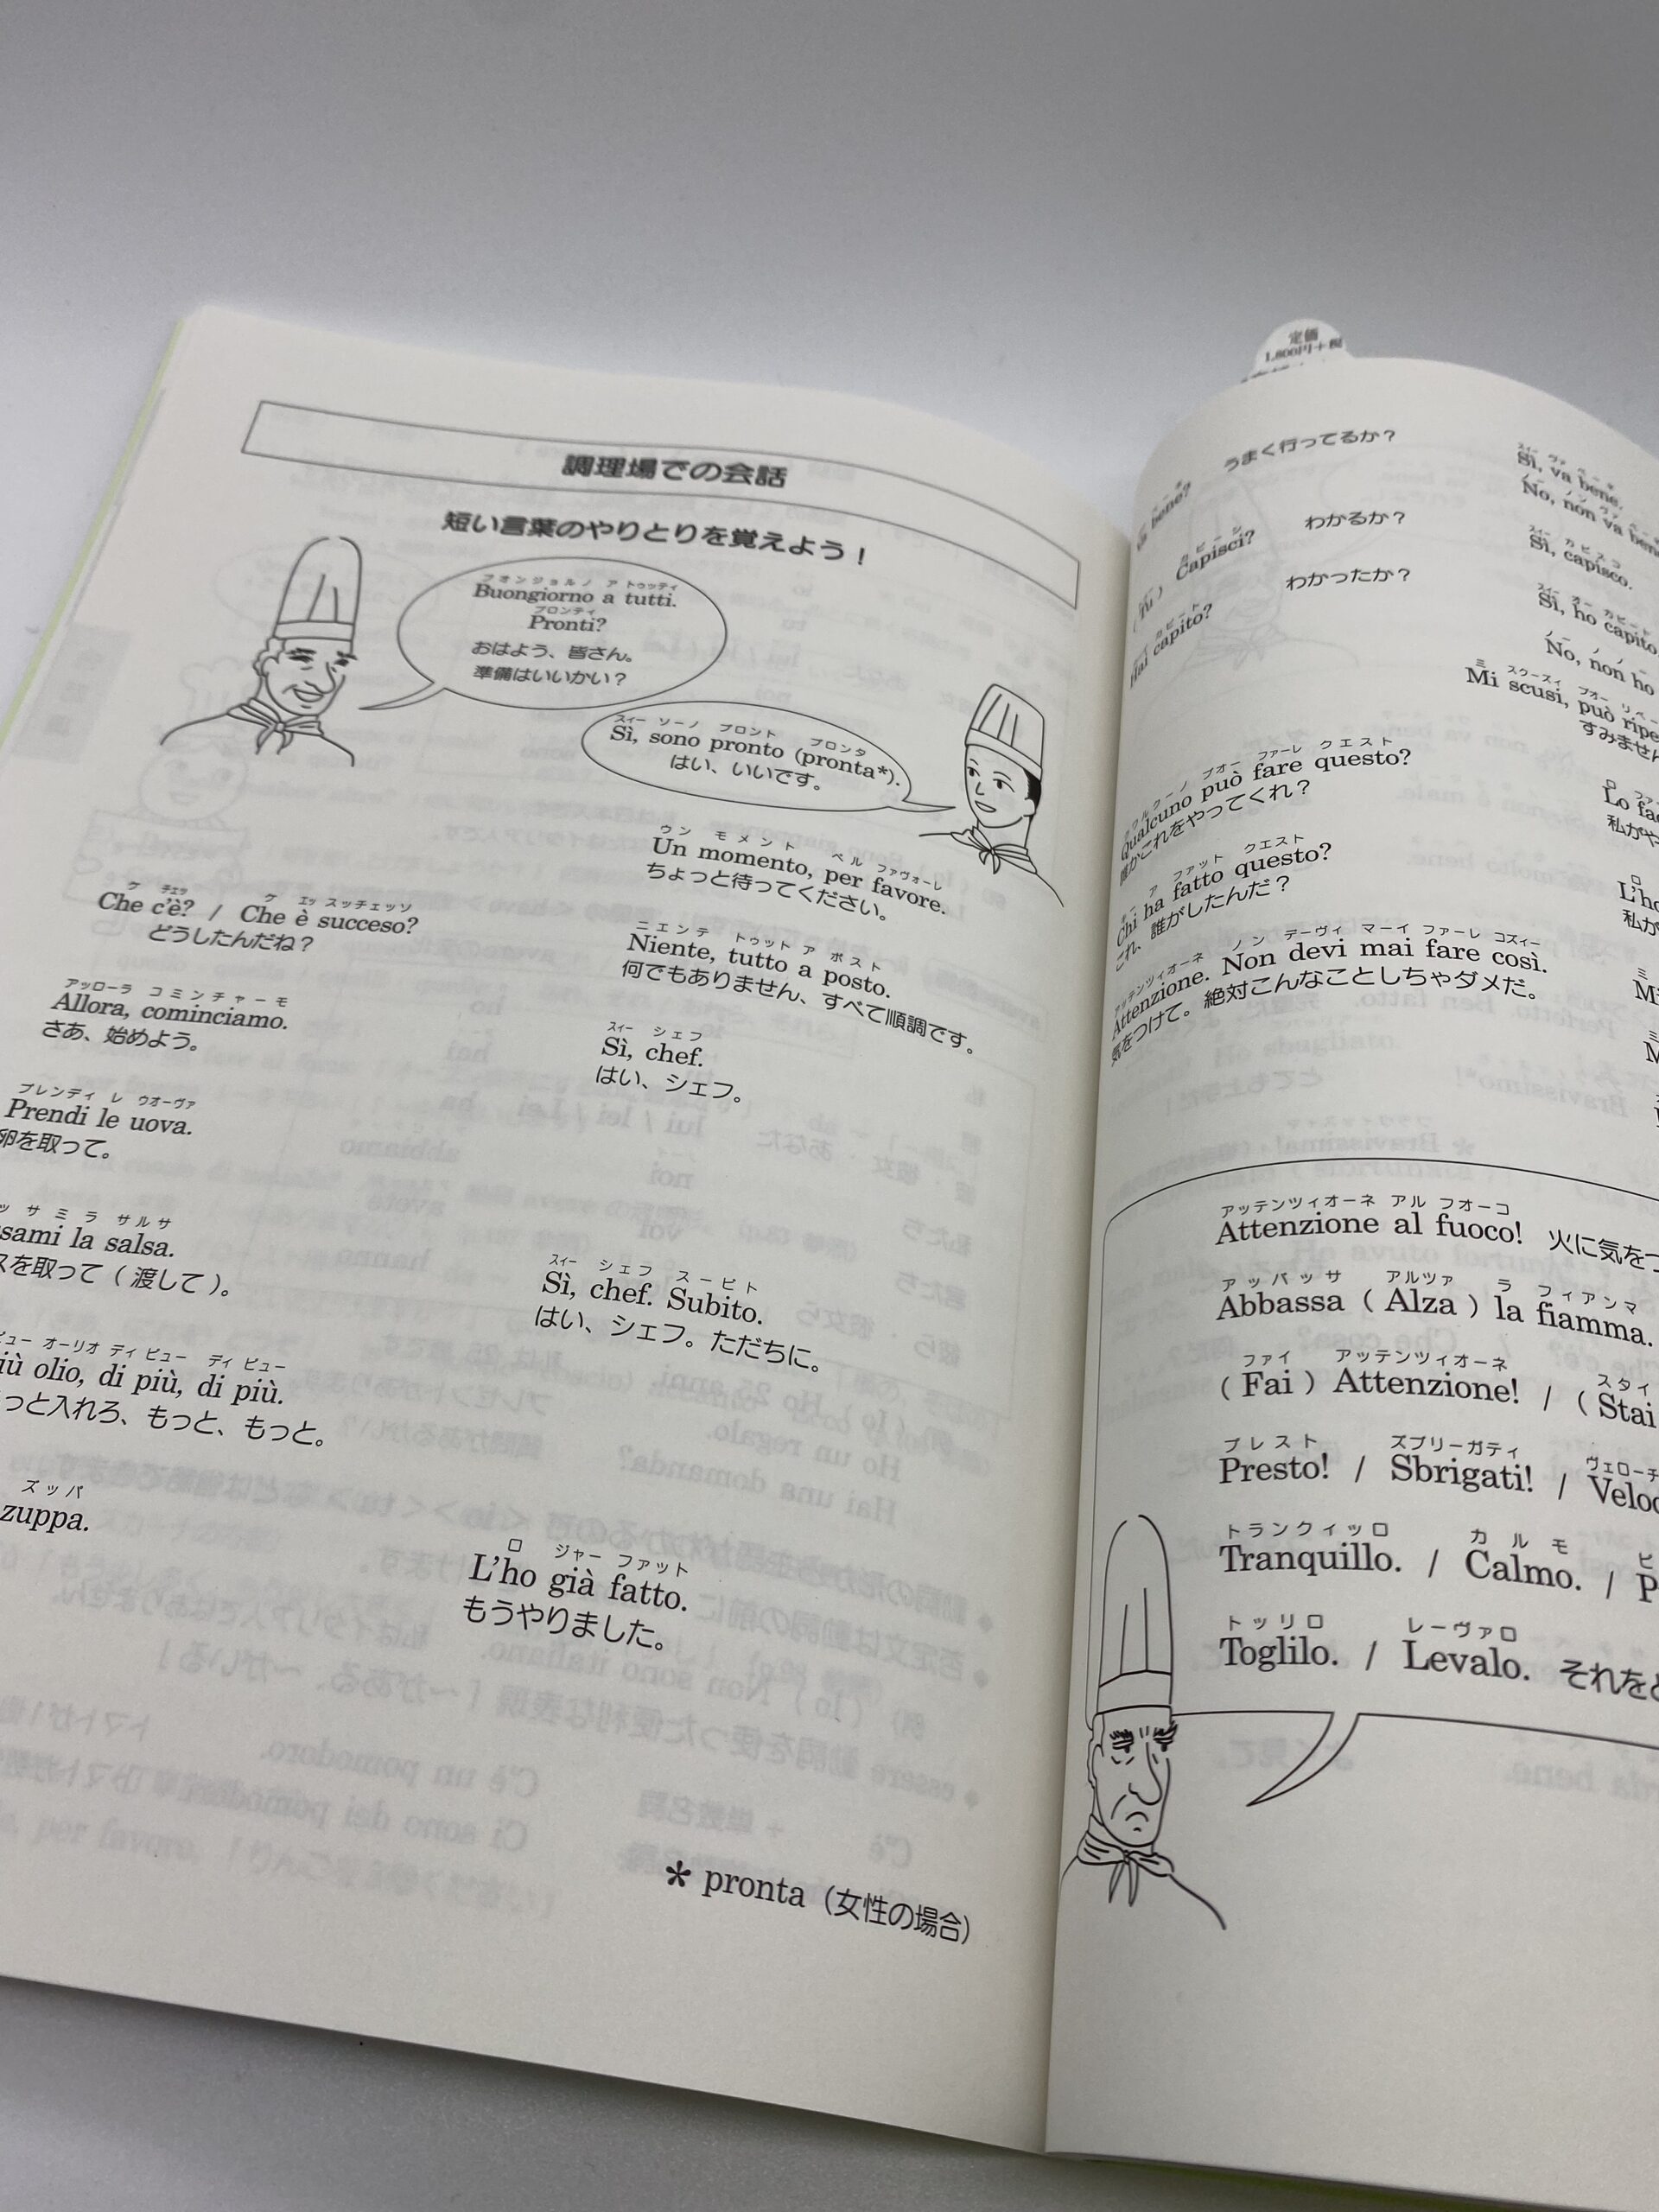 調理場での会話
短い言葉のやりとりを覚えよう！
ブオンジョルノ ア トゥッティ
Buongiorno a tutti.
プロンティ
Pronti?
おはよう、皆さん。
準備はいいかい？
スィー ソーノ プロント プロンタ
Sì, sono pronto (pronta*).
はい、いいです。
ウン モメント ペル ファヴォーレ
Un momento, per favore.
ちょっと待ってください。
ケ チェッ ケ エッ スッチェッソ
Che c'è? / Che è succeso?
どうしたんだね？
ニエンテ トゥット ア ポスト
Niente, tutto a posto.
何でもありません、すべて順調です。
アッローラ コミンチャーモ
Allora, cominciamo.
さあ、始めよう。
スィー シェフ
Sì, chef.
はい、シェフ。
プレンディ レ ウオーヴァ
Prendi le uova.
卵を取って。
サミ ラ サルサ
sami la salsa.
スを取って（渡して）。
スィー シェフ スービト
Sì, chef. Subito.
はい、シェフ。ただちに。
ピュー オーリオ ディ ピュー ディ ピュー
iù olio, di più, di più.
っと入れろ、もっと、もっと。
ズッパ
zuppa.
ロ ジャー ファット
L'ho già fatto.
もうやりました。
* pronta（女性の場合）
定価
1,800円＋税
bene?
うまく行ってるか？
スィー ヴァ ベーネ
Sì, va bene.
ノー ノン ヴァ
No, non va bene
カピーシ
Capisci?
わかるか？
スィー カピスコ
Sì, capisco.
カピート
Hai capito?
わかったか？
スィー オー カピート
Sì, ho capito.
ノー
No, non ho
ミ スクーズィ プオー リペ
Mi scusi, può ripe
すみません
クワルクーノ プオー ファーレ クエスト
Qualcuno può fare questo?
誰かこれをやってくれ？
ロ
Lo fac
私がや
キー ア ファット クエスト
Chi ha fatto questo?
これ、誰がしたんだ？
ロ
L'ho
私が
アッテンツィオーネ ノン デーヴィ マーイ ファーレ コズィー
Attenzione. Non devi mai fare così.
気をつけて。絶対こんなことしちゃダメだ。
ミ
Mi
アッテンツィオーネ アル フオーコ
Attenzione al fuoco! 火に気をつ
アッバッサ アルツァ ラ フィアンマ
Abbassa ( Alza ) la fiamma.
ファイ アッテンツィオーネ スタイ
( Fai ) Attenzione! / ( Stai
プレスト ズブリーガティ ヴェローチ
Presto! / Sbrigati! / Veloc
トランクィッロ カルモ ピ
Tranquillo. / Calmo. / P
トッリロ レーヴァロ
Toglilo. / Levalo. それをど